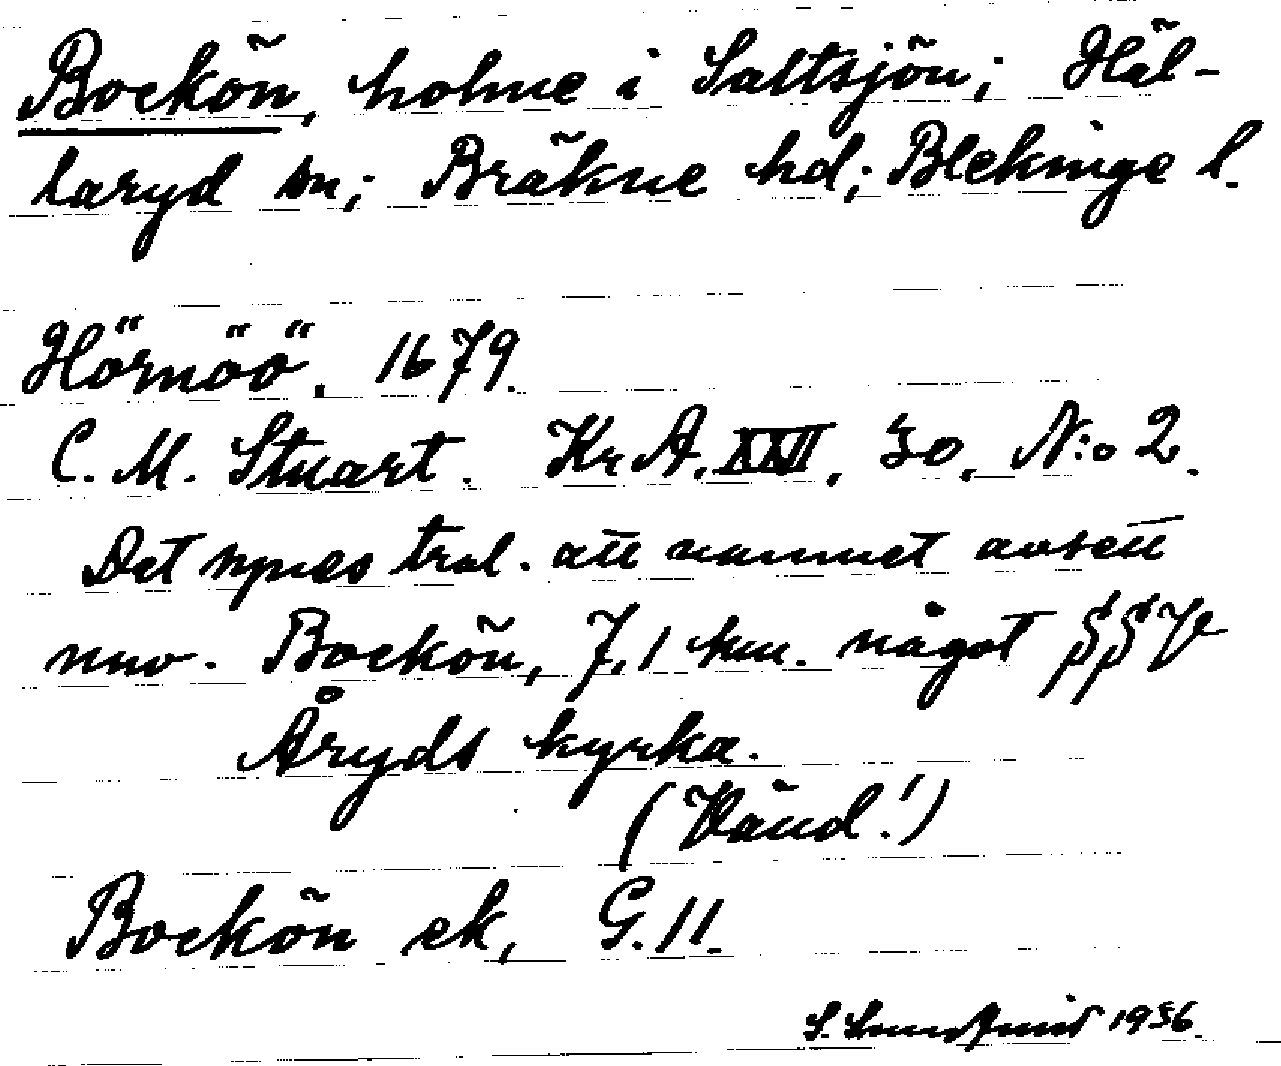 Bockön, holme i Saltsjön; Häl-
laryd sn; Bräkne hd; Blekinge l.
Hörnöö. 1679.
C. M. Stuart. Kr A. XXII, 30, N:o 2.
Det synes trol. att namnet avsett
nuv. Bockön, 7,1 km. något
Åryds kyrka.
(Vänd!)
Bockön ek, G.11.
S. 1936.